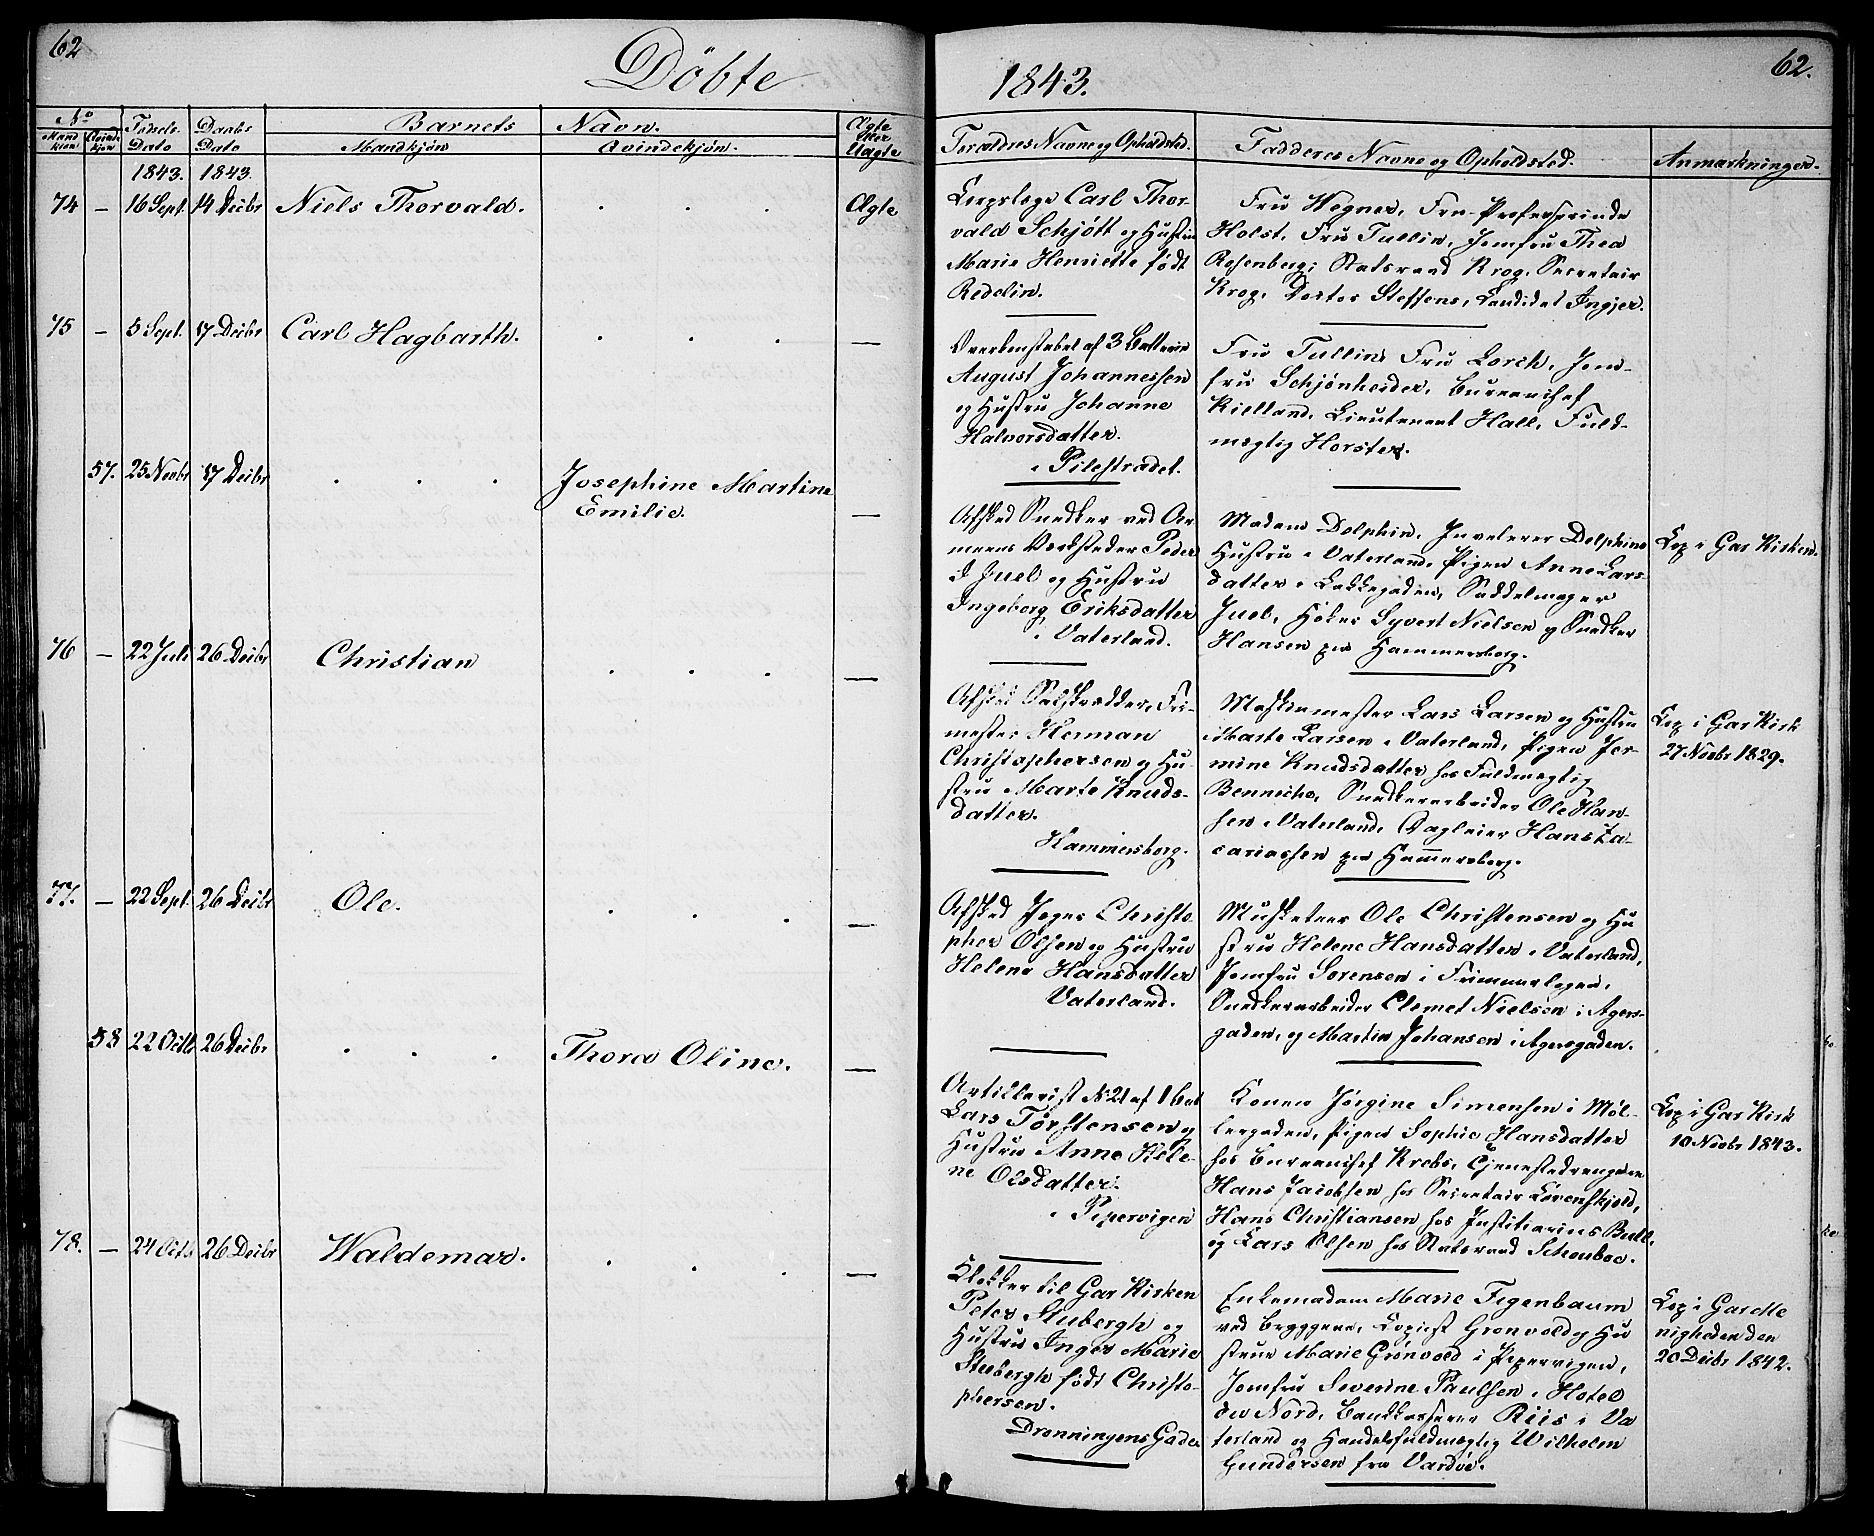 62
Döbte
1843.
62.
No
Mand kjön
Qvinde kjön
Fødsels Dato
Daabs Dato
Barnets Navn.
Mandkjøn
Qvindekjøn.
Ægte eller Uægte
Forældres Navne og Opholdsted.
Fadderes Navne og Opholdsted.
Anmærkninger.
1843. 1843.
74 — 16 Sept. 14 Decbr Niels Thorvald. . . . Ægte
Corpslæge Carl Thor-
vald Schjøtt og Hustru
Marie Henriette født
Redelin.
Fru Wegner, Fru Professorinde
Holst, Fru Tullin, Jomfru Thea
Rosenberg; Statsraad Krog, Secretair
Krog, Doctor Steffens, Candidat Ingjer.
75 — 5 Sept. 17 Decbr Carl Hagbarth. . . . —
Overkonstabel af 3 Batterie
August Johannessen
og Hustru Johanne
Halvorsdatter.
i Pilestrædet.
Fru Tullin, Fru Lorch, Jom-
fru Schjønheider, Bureauchef
Kielland, Lieutenant Hall, Fuld-
mægtig Horster.
57. 25 Novbr 17 Decbr . . . Josephine Martine
Emilie. —
Afsked Snedker ved Ar-
meens Værksteder Peder
J Juel og Hustru
Ingeborg Eriksdatter
i Vaterland.
Madam Dolphin, Juvelerer Dolphins
Hustru i Vaterland, Pigen Anne Lars-
datter i Lakkegaden, Saddelmager
Juel, Høker Syvert Nielsen og Snedker
Hansen paa Hammersborg.
Cop i Gar Kirken.
76 — 22 Juli 26 Decbr Christian . . . —
Mester Herman
Christophersen og Hu-
stru Marte Knuds-
datter.
Hammersborg.
Maskinmester Lars Larsen og Hustru
Marte Larsen i Vaterland, Pigen Jor-
mine Knudsdatter hos Fuldmægtig
Bennicke, Snedkerarbeider Ole Han-
sen i Vaterland, Dagleier Hans Za-
cariassen paa Hammersborg.
Cop i Gar Kirk
27 Novbr 1829.
77. — 22 Sept. 26 Decbr Ole. . . . —
Afsked Jæger Christo-
pher Olsen og Hustru
Helene Hansdatter
Vaterland.
Musketeer Ole Christensen og Hu
stru Helene Hansdatter i Vaterland,
Jomfru Sørensen i
Snedkerarbeider Clemet Nielsen i Agers-
gaden, og Martin Johansen i Agersgaden.
58 22 Octb 26 Decbr . . . Thora Oline. —
Artillerist No 21 af 1 Bat
Lars Torstensen og
Hustru Anne Hele-
ne Olsdatter.
i Pipervigen
Konen Jørgine Simensen i Møl-
lergaden, Pigen Sophie Hansdatter
hos Bureauchef Krebs, Tjenestedrengene
Hans Jacobsen hos Secretair Løvenskjold,
Hans Christiansen hos Justitiarius Bull,
og Lars Olsen hos Statsraad Schouboe.
Cop i Gar Kirk
10 Novbr 1843.
78. — 24 Octb 26 Decbr Waldemar. . . . —
Klokker til Gar Kirken
Peter Stubergh og
Hustru Inger Marie
Stubergh født Christo-
phersen.
Dronningens Gade
Enkemadam Marie Figenbaum
ved Bryggene, Copiist Grønvold og Hu
strue Marie Grønvold i Pipervigen,
Jomfru Severine Paulsen i Hotel
du Nord, Bankkasserer Riis i Va
terland og Handelsfuldmægtig Wilhelm
Gundersen fra Vardøe.
Cop i Gar Me
nigheden den
20 Decbr 1842.